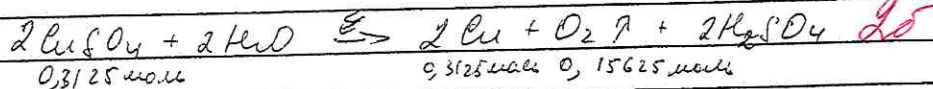 2CuSO₄ + 2H₂O ⇄ 2Cu + O₂↑ + 2H₂SO₄ 2б
0,3125 моль 0,3125 моль 0,15625 моль